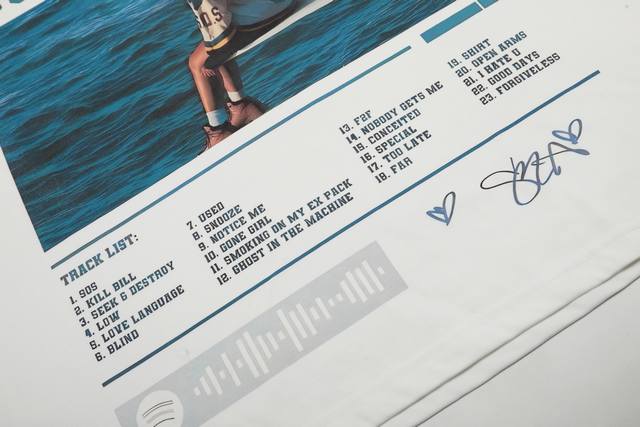 SOS
TRACK LIST:
1. SOS
2. KILL BILL
3. SEEK & DESTROY
4. LOW
5. LOVE LANGUAGE
6. BLIND
7. USED
8. SNOOZE
9. NOTICE ME
10. GONE GIRL
11. SMOKING ON MY EX PACK
12. GHOST IN THE MACHINE
13. F2F
14. NOBODY GETS ME
15. CONCEITED
16. SPECIAL
17. TOO LATE
18. FAR
19. SHIRT
20. OPEN ARMS
21. I HATE U
22. GOOD DAYS
23. FORGIVELESS